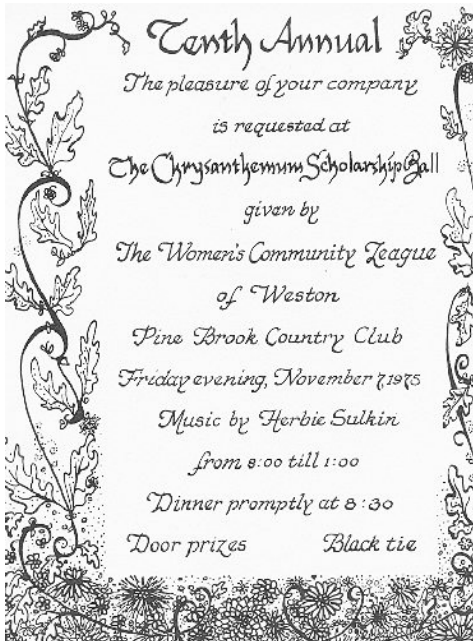 Tenth Annual
The pleasure of your company
is requested at
The Chrysanthemum Scholarship Ball
given by
The Women's Community League
of Weston
Pine Brook Country Club
Friday evening, November 7, 1975
Music by Herbie Sulkin
from 8:00 till 1:00
Dinner promptly at 8:30
Door prizes Black tie